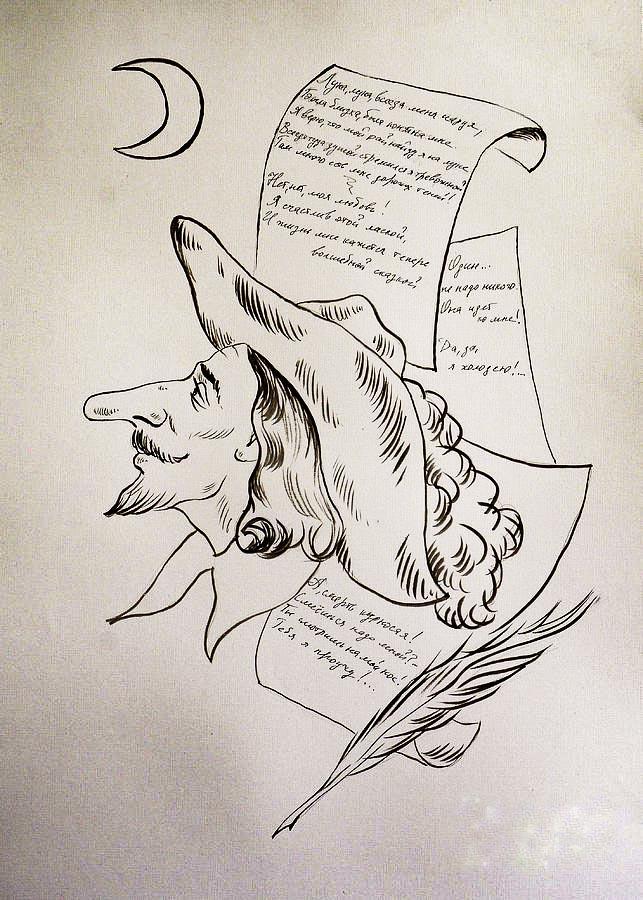 Луна, луна, всегда меня чаруя,
Ты была близка, была понятна мне
Я верю, что мой рай найду я на луне
Всегда туда душой стремился я тревожной!
Там много есть мне дорогих теней!!
Нет, нет, моя любовь!
Я счастлив этой лаской,
И жизнь мне кажется теперь
волшебной сказкой,
Один...
не надо никого.
Она идет
ко мне!
Да, да,
я холодею!...
А, смерть курносая!
Смеёшься надо мной??-
Ты смотришь на мой нос!
Тебя я проучу!...